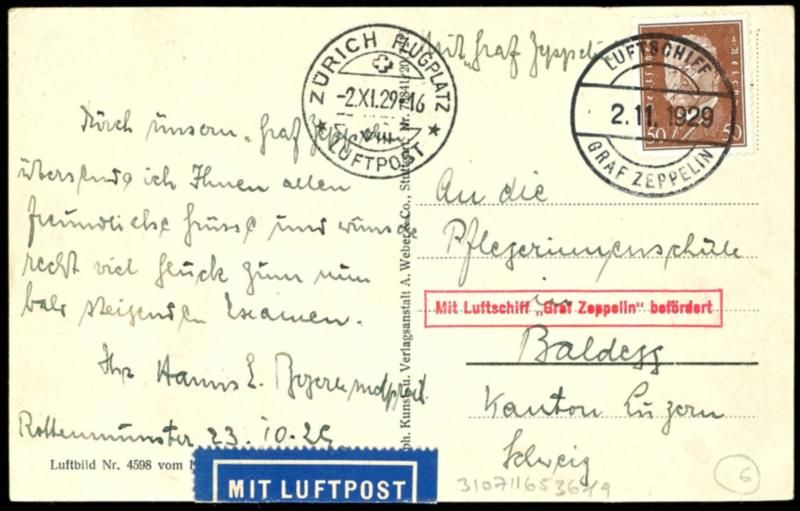 Mit „Graf Zeppelin
ZÜRICH FLUGPLATZ
-2.XI.29-16
VIII
LUFTPOST
LUFTSCHIFF
2.11.1929
GRAF ZEPPELIN
50 50
Durch unsern „Graf Zeppelin
übersende ich Ihnen allen
freundliche Grüsse und wünsche
recht viel Glück zum nun
bald steigenden Examen.
Ihr Hanns E.
Rottenmünster 23.10.29.
Luftbild Nr. 4598 vom
MIT LUFTPOST
Kunst- u. Verlagsanstalt A. Weber & Co., Stuttgart
An die
Pflegerinnenschule
in
Mit Luftschiff „Graf Zeppelin" befördert
Baldegg
Kanton Luzern
Schweiz
6